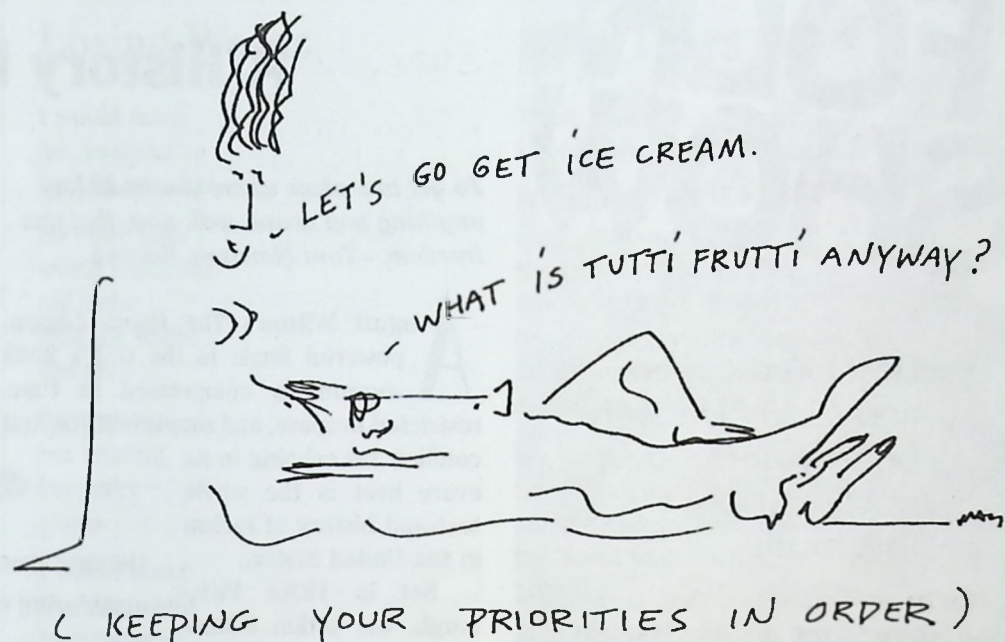 LET'S GO GET iCE CREAM.
WHAT iS TUTTi FRUTTi ANYWAY?
( KEEPING YOUR PRIORITIES IN ORDER )